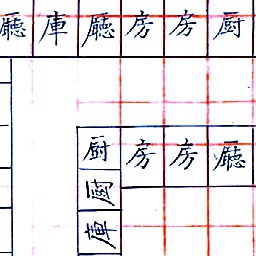 廳庫廳房房厨
厨房房廳
圊
庫